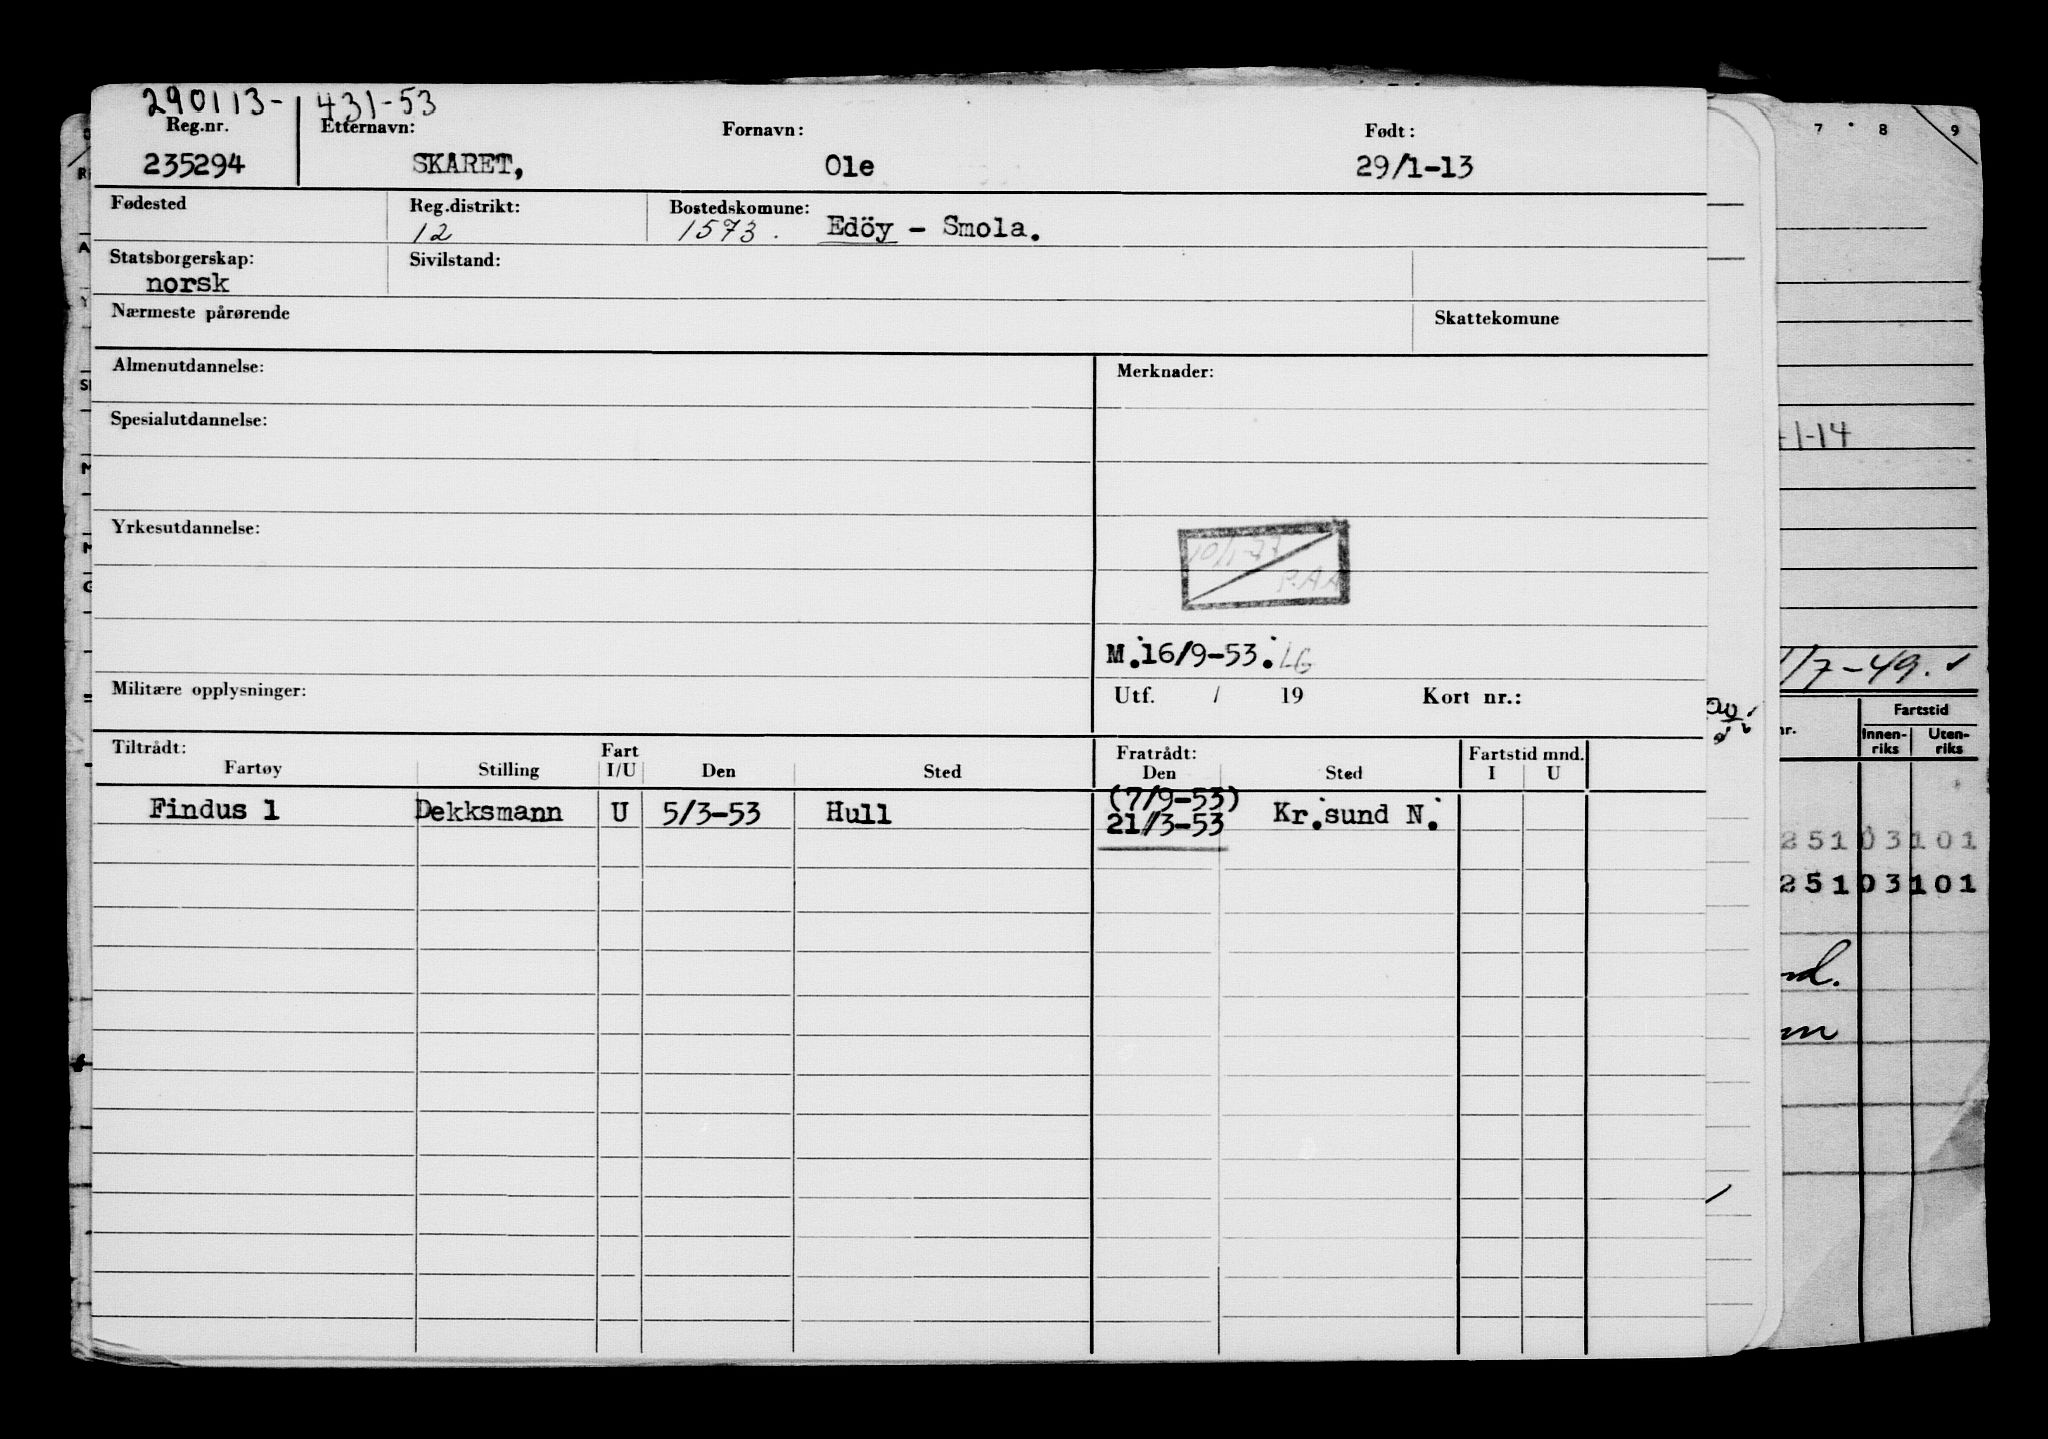 290113- 431-53
Reg.nr. Etternavn: Fornavn: Født:
235294 SKARET, Ole 29/1-13
Fødested Reg.distrikt: Bostedskomune:
12 1573. Edöy - Smola.
Statsborgerskap: Sivilstand:
norsk
Nærmeste pårørende Skattekomune
Almenutdannelse: Merknader:
Spesialutdannelse:
Yrkesutdannelse:
10/1-77
P.A.A
M.16/9-53. LG
Militære opplysninger: Utf. / 19 Kort nr.:
Tiltrådt: Fart Fratrådt: Fartstid mnd.
Fartøy Stilling I/U Den Sted Den Sted I U
(7/9-53)
Findus 1 Dekksmann U 5/3-53 Hull 21/3-53 Kr.sund N.
7 8 9
1-14
1/7-49.
Fartstid
nr. Innen- Uten-
riks riks
25103101
25103101
nd.